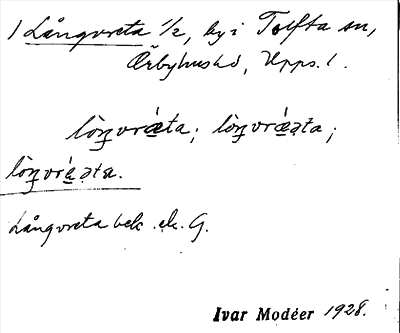 1 Långvreta 1/2, by i Tolfta sn,
Örbyhus hd, Upps. l.
lòŋvrǽta; lòŋvrǽəta;
lòŋvrǽəta.
Långvreta bek. ek. G.
Ivar Modéer 1928.